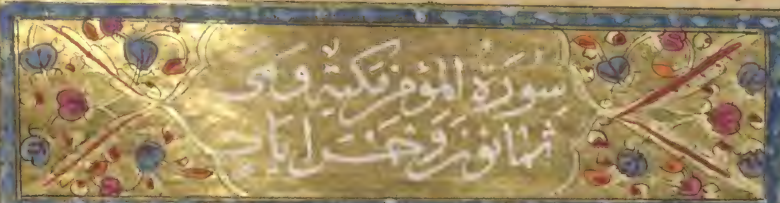 سورة المؤمن مكية وهي
ثمانون وخمس ايات